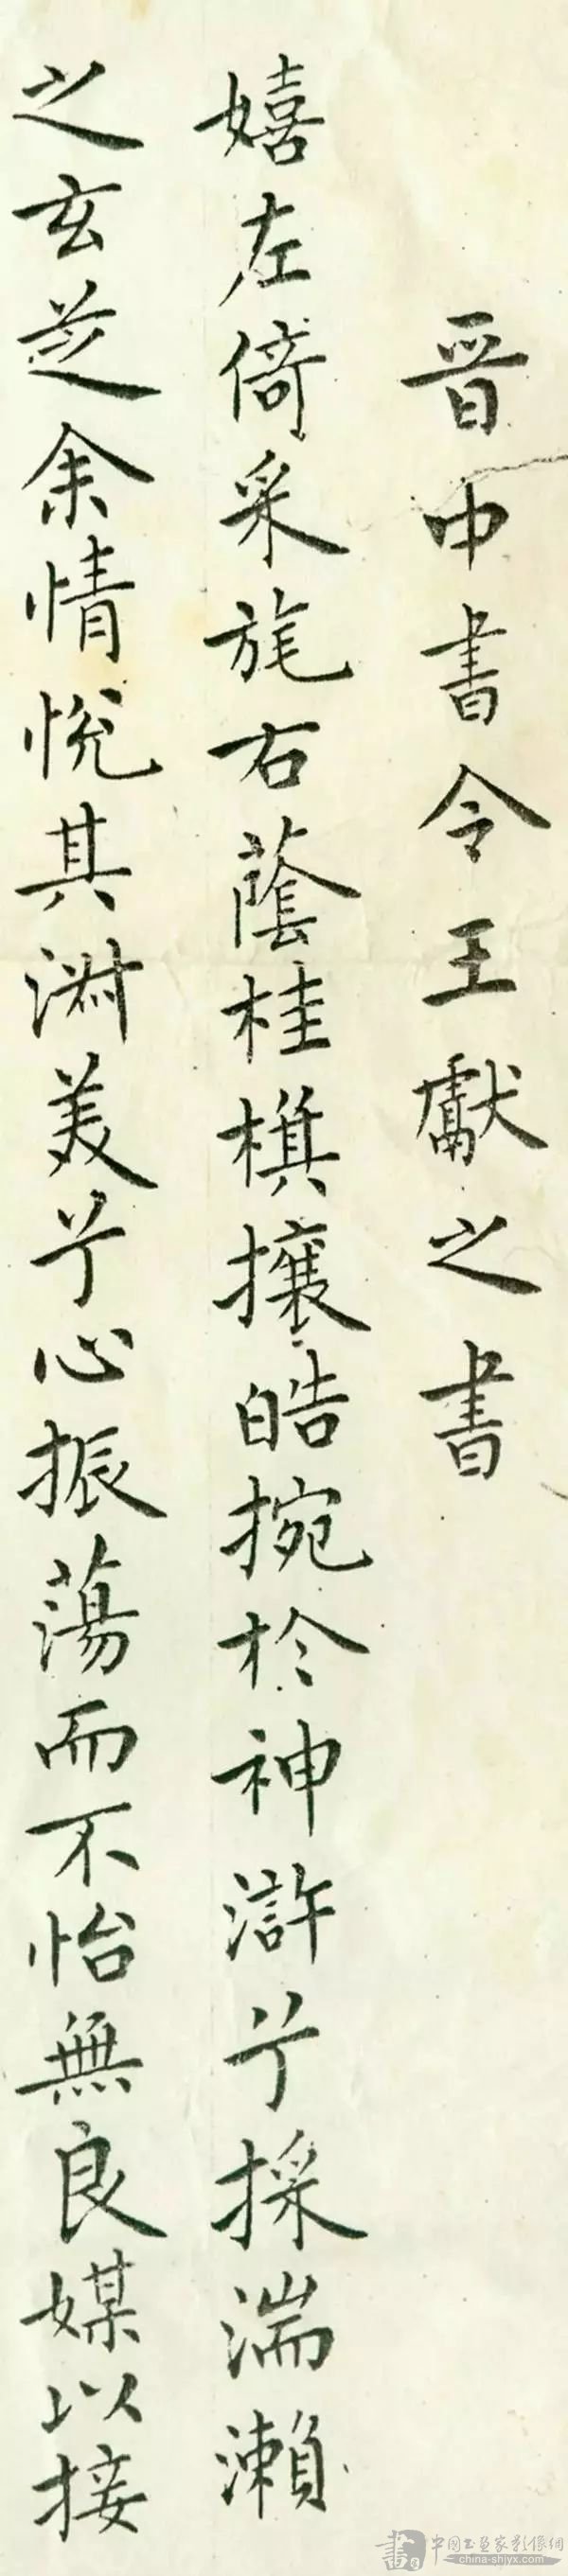 晋中書令王獻之書
嬉左倚采旄右蔭桂棋攘皓捥於神滸兮採湍瀨
之玄芝余情悅其淑美兮心振蕩而不怡無良媒以接
中国书画家影像网
china-shjyx.com